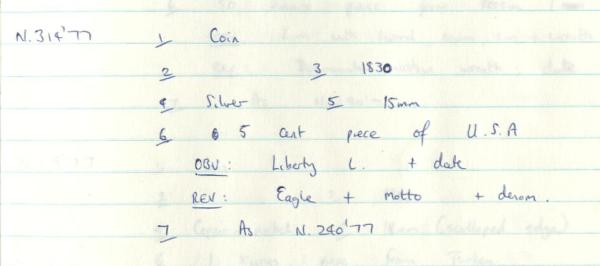 N.314'77 1 Coin
2 3 1830
4 Silver 5 15mm
6 5 cent piece of U.S.A
OBV: Liberty L. + date
REV: Eagle + motto + denom.
7 As N.240'77